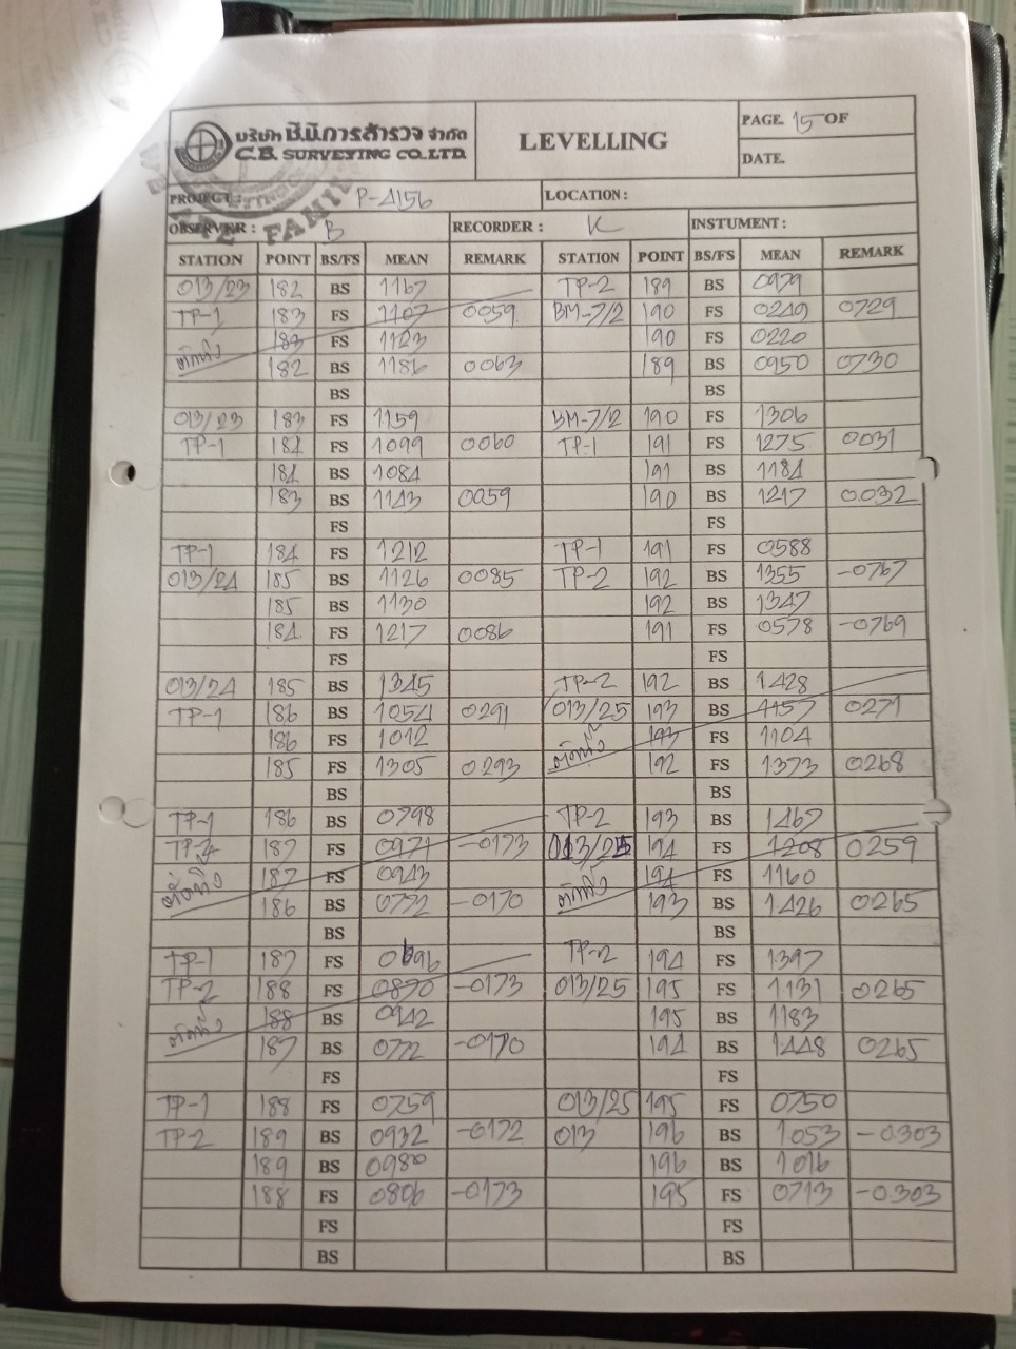 บริษัท ซี.บี.การสำรวจ จำกัด
C.B. SURVEYING CO.,LTD.
LEVELLING
PAGE. 15 OF
DATE.
PROJECT : P-4156 LOCATION :
OBSERVER : B RECORDER : K INSTUMENT :
STATION POINT BS/FS MEAN REMARK STATION POINT BS/FS MEAN REMARK
013/23 182 BS 1167 TP-2 189 BS 0979
TP-1 183 FS 1107 0059 BM-7/2 190 FS 0249 0729
183 FS 1123 190 FS 0220
182 BS 1186 0063 189 BS 0950 0730
BS BS
013/23 183 FS 1159 BM-7/2 190 FS 1306
TP-1 184 FS 1099 0060 TP-1 191 FS 1275 0031
184 BS 1084 191 BS 1184
183 BS 1143 0059 190 BS 1217 0032
FS FS
TP-1 184 FS 1212 TP-1 191 FS 0588
013/24 185 BS 1126 0085 TP-2 192 BS 1355 -0767
185 BS 1130 192 BS 1347
184 FS 1217 0086 191 FS 0578 -0769
FS FS
013/24 185 BS 1345 TP-2 192 BS 1428
TP-1 186 BS 1054 0291 013/25 193 BS 1157 0271
186 FS 1012 193 FS 1104
185 FS 1305 0293 192 FS 1373 0268
BS BS
TP-1 186 BS 0798 TP-2 193 BS 1467
187 FS 0971 -0173 013/25 194 FS 1208 0259
187 FS 0943 194 FS 1160
186 BS 0772 -0170 193 BS 1426 0265
BS BS
TP-1 187 FS 0696 TP-2 194 FS 1397
TP-2 188 FS 0870 -0173 013/25 195 FS 1131 0265
188 BS 0942 195 BS 1183
187 BS 0772 -0170 194 BS 1448 0265
FS FS
TP-1 188 FS 0759 013/25 195 FS 0750
TP-2 189 BS 0932 -0172 013 196 BS 1053 -0303
189 BS 0980 196 BS 1016
188 FS 0806 -0173 195 FS 0713 -0303
FS FS
BS BS